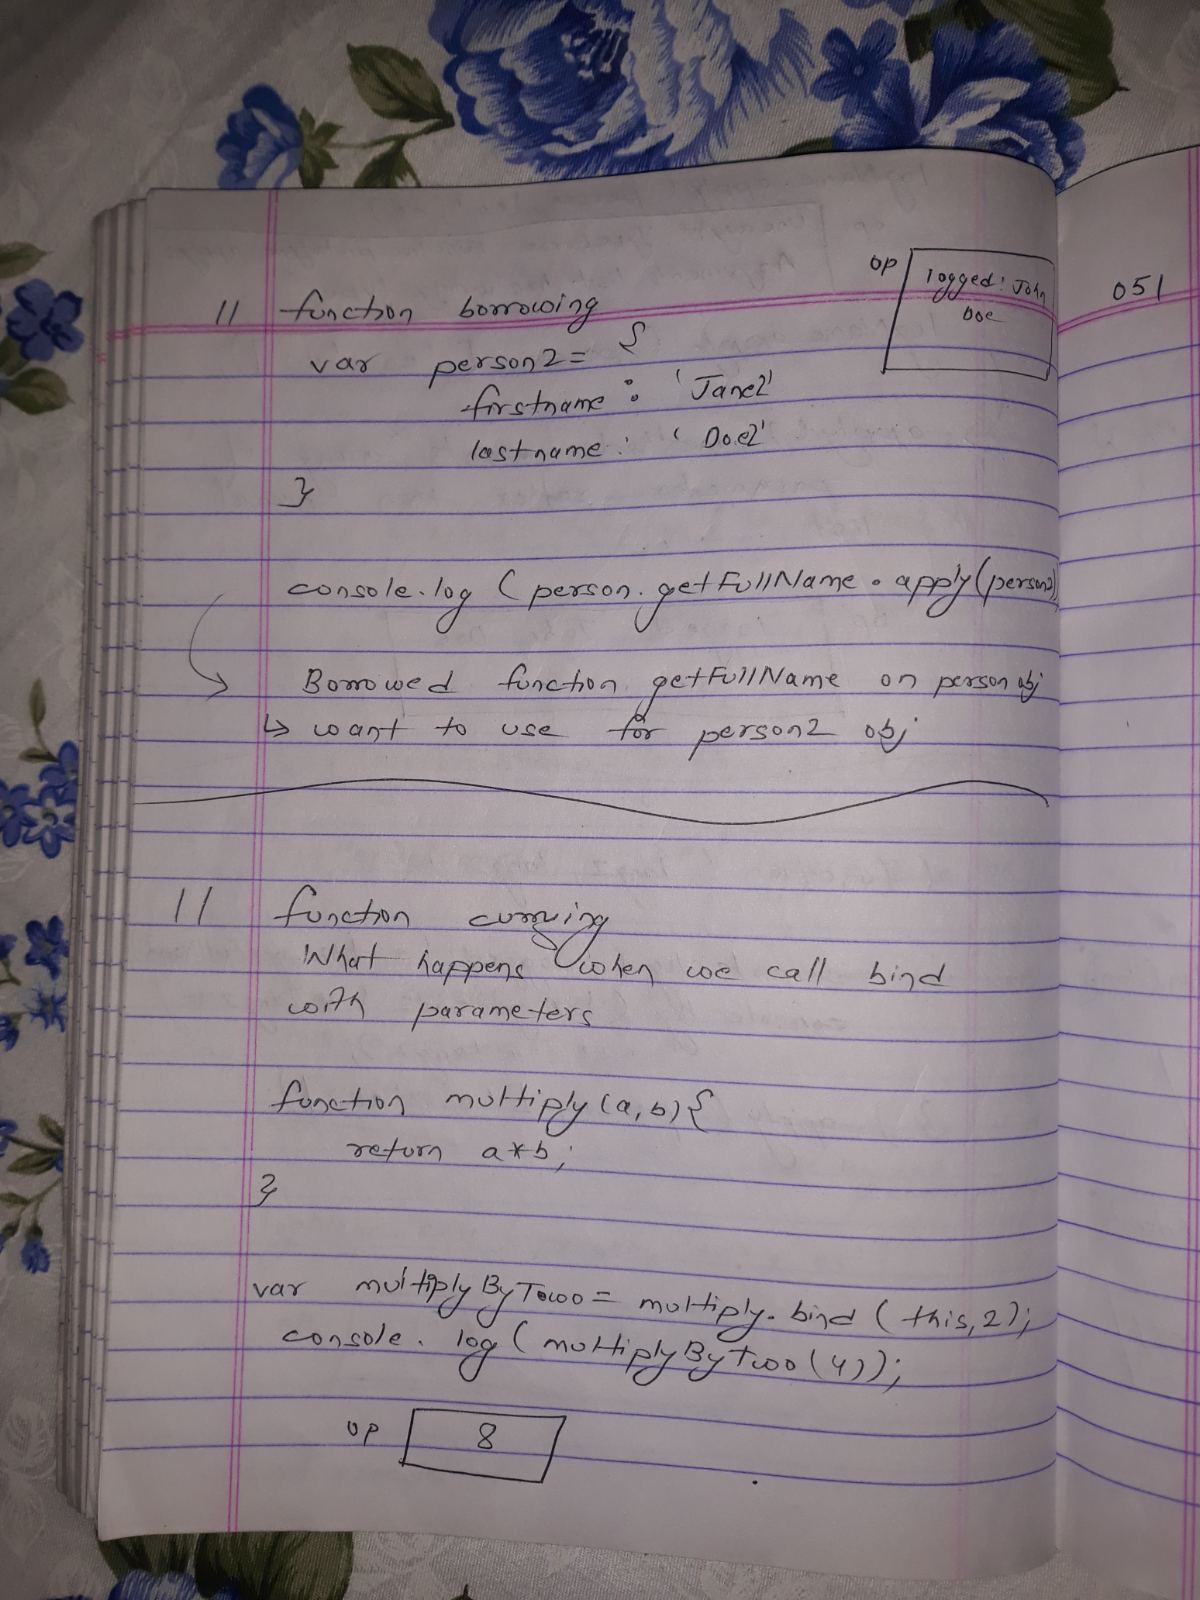 op
logged: John
Doe
051
// function borrowing
var person2 = {
firstname : 'Jane2'
lastname : 'Doe2'
}
console.log (person.getFullName.apply(person2)
Borrowed function getFullName on person obj
↳ want to use for person2 obj
// function currying
What happens when we call bind
with parameters
function multiply (a, b) {
return a*b;
}
var multiplyByTwoo = multiply.bind (this, 2);
console.log (multiplyByTwoo (4));
op 8